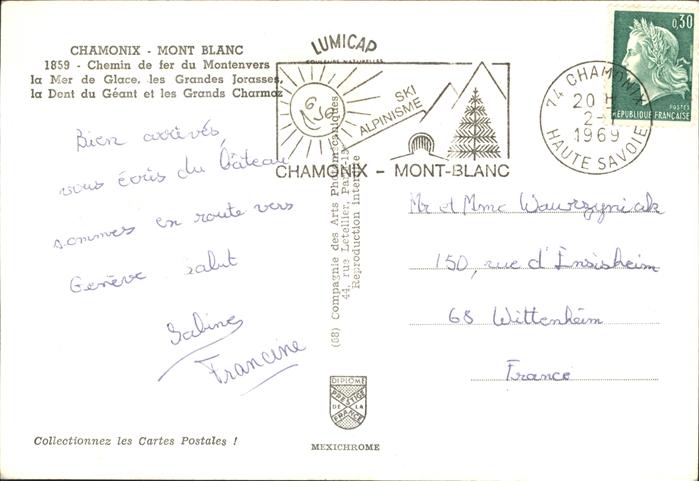 CHAMONIX - MONT BLANC
1859 - Chemin de fer du Montenvers
la Mer de Glace, les Grandes Jorasses,
la Dent du Géant et les Grands Charmoz
Bien arrivés,
vous écris du bâteau
sommes en route vers
Genève Salut
Sabine
Francine
Collectionnez les Cartes Postales !
LUMICAP
COULEURS NATURELLES
SKI
ALPINISME
CHAMONIX - MONT-BLANC
(58) Compagnie des Arts Photomécaniques
44, rue Letellier, Paris-15
Reproduction interdite
DIPLOME
PRESTIGE
DE LA
FRANCE
MEXICHROME
74 CHAMONIX
20 H
2-
1969
HAUTE SAVOIE
0,30
POSTES
REPUBLIQUE FRANÇAISE
Mr et Mme Wawrzyniak
150, rue d'Ensisheim
68 Wittenheim
France